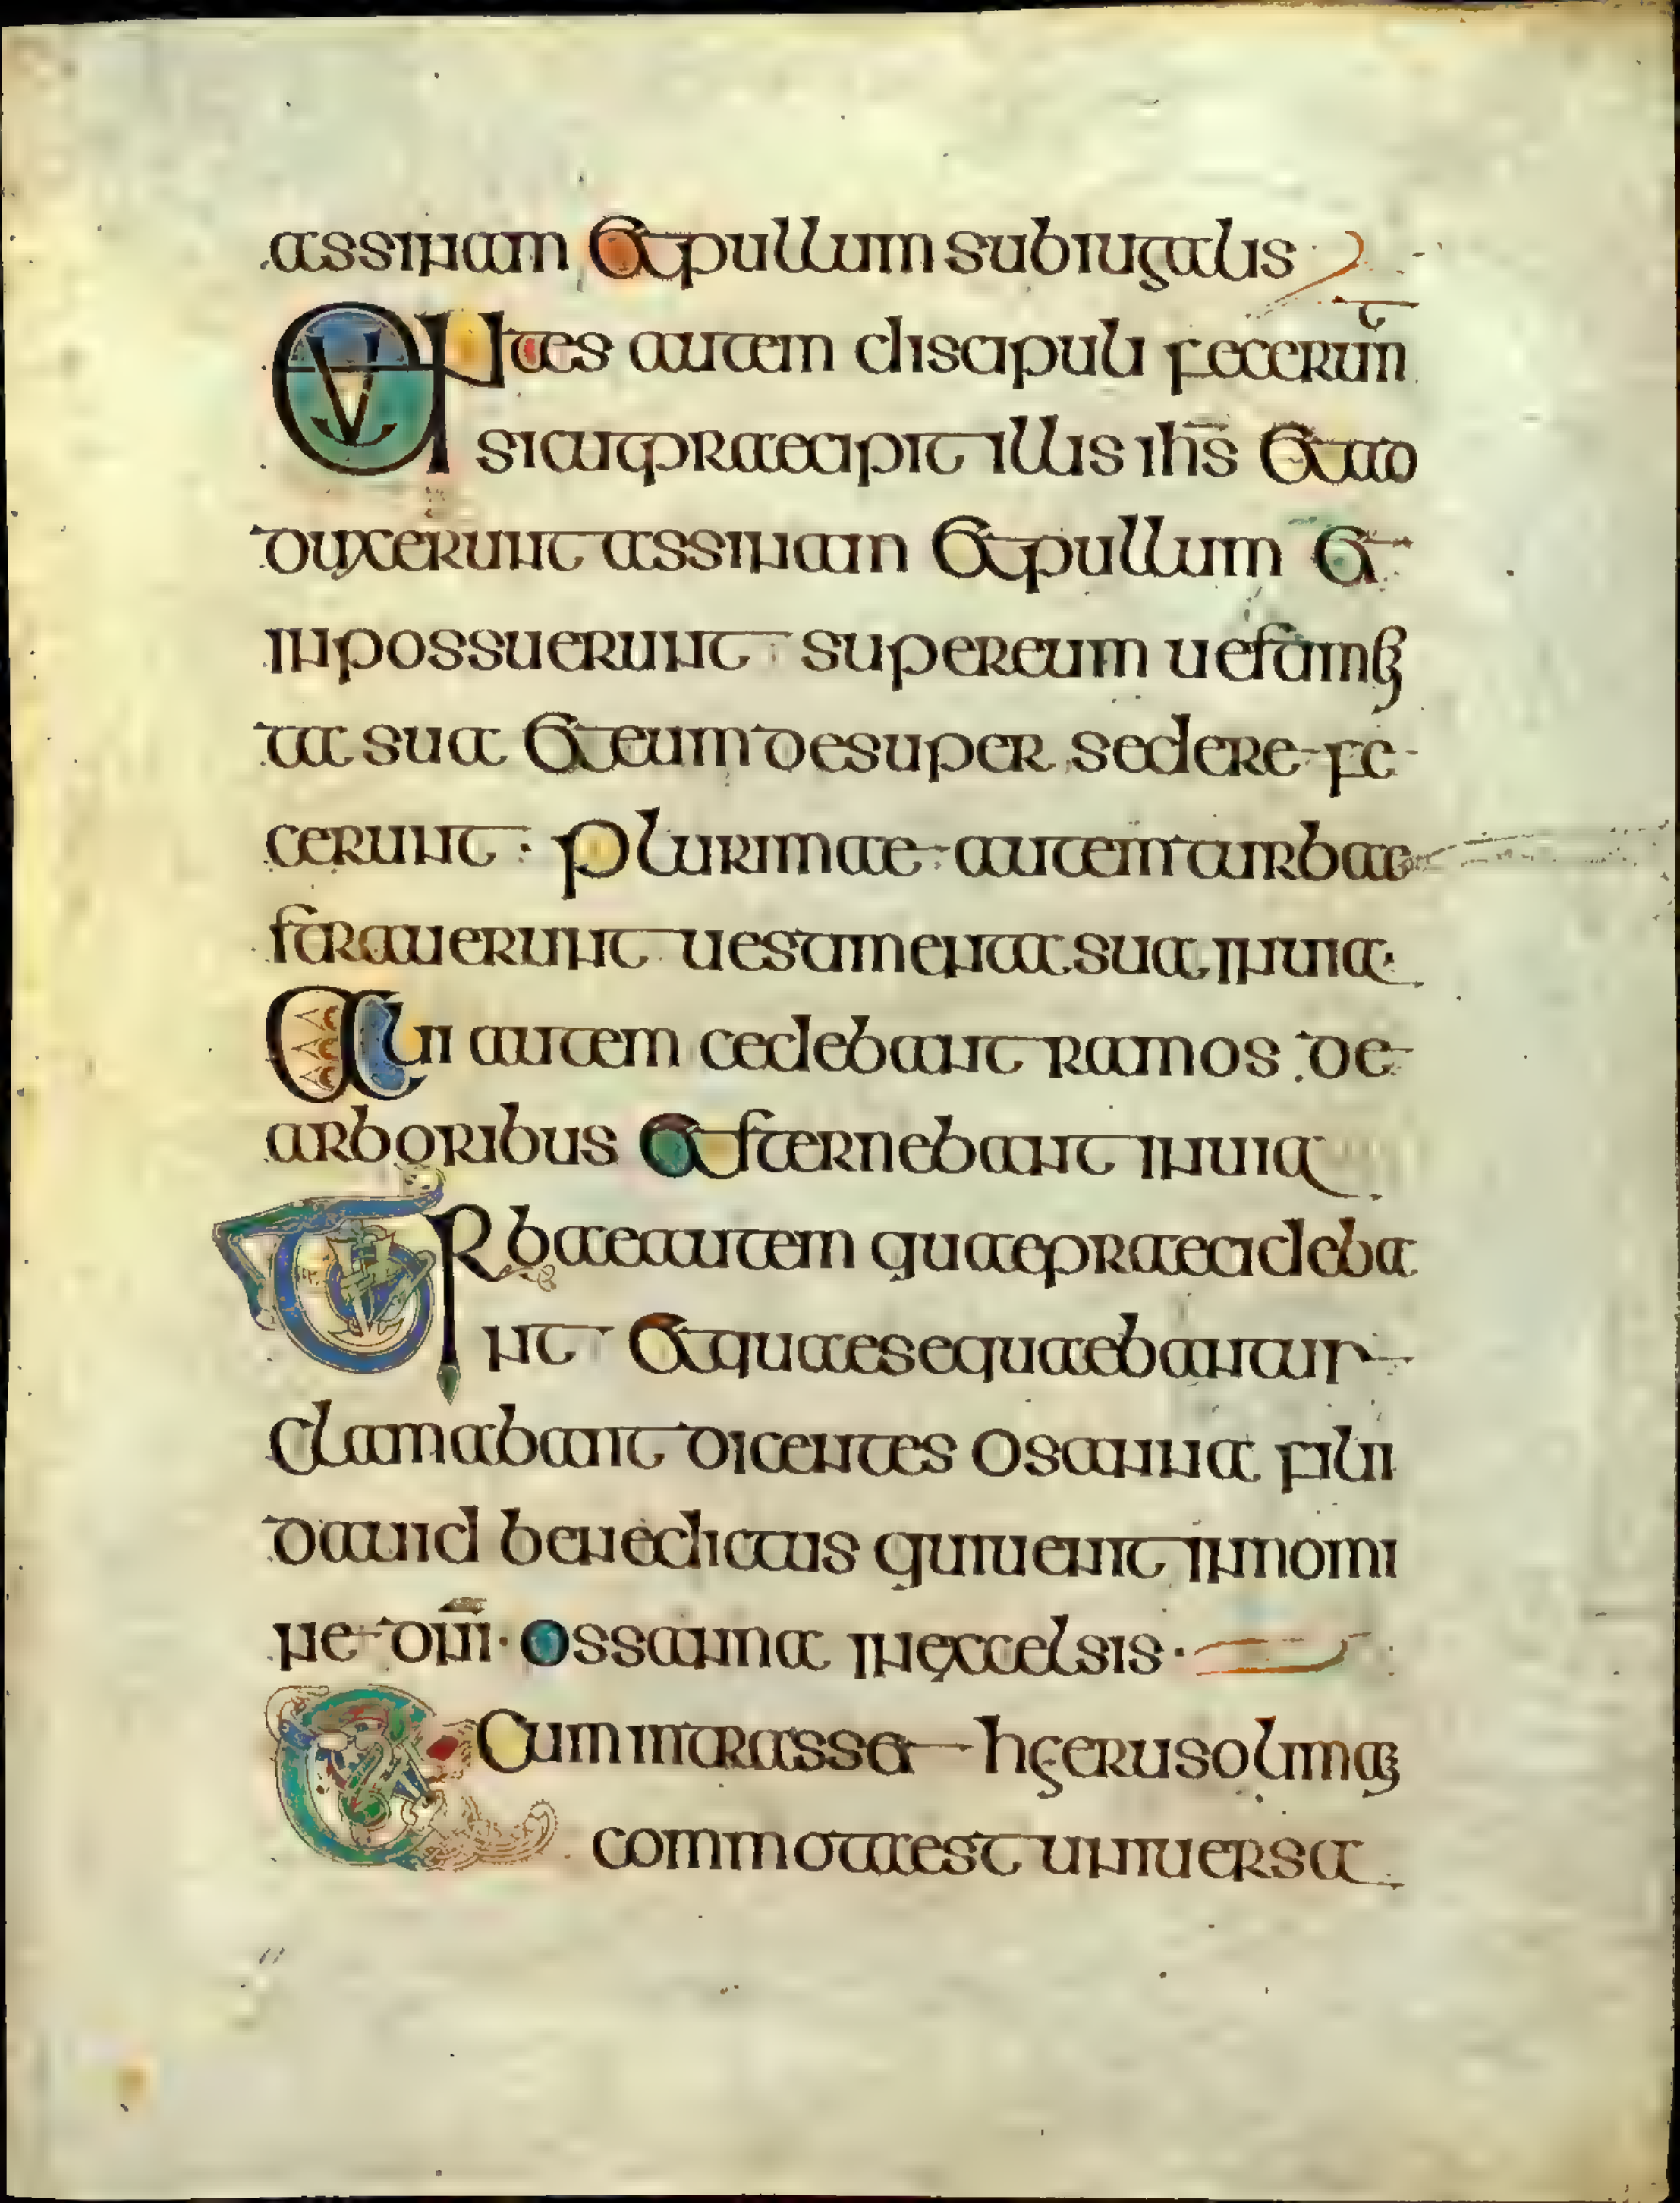 assinam et pullum subiugalis
Euntes autem discipuli fecerun̄t
sicut praecipit illis ihs̄ et ad
duxerunt assinam et pullum et
inpossuerunt super eum uestim
ta sua et eum desuper sedere fe
cerunt · plurimae autem turbae
strauerunt uestimenta sua in uia
Alii autem cedebant ramos de
arboribus et sternebant in uia
Turbae autem quae praecideba
nt et quae sequaebantur
clamabant dicentes osanna filii
dauid benedictus qui uenit in nomi
ne dn̄i · ossanna in excelsis ·
Et Cum intrasset hęerusolima
commota est uniuersa